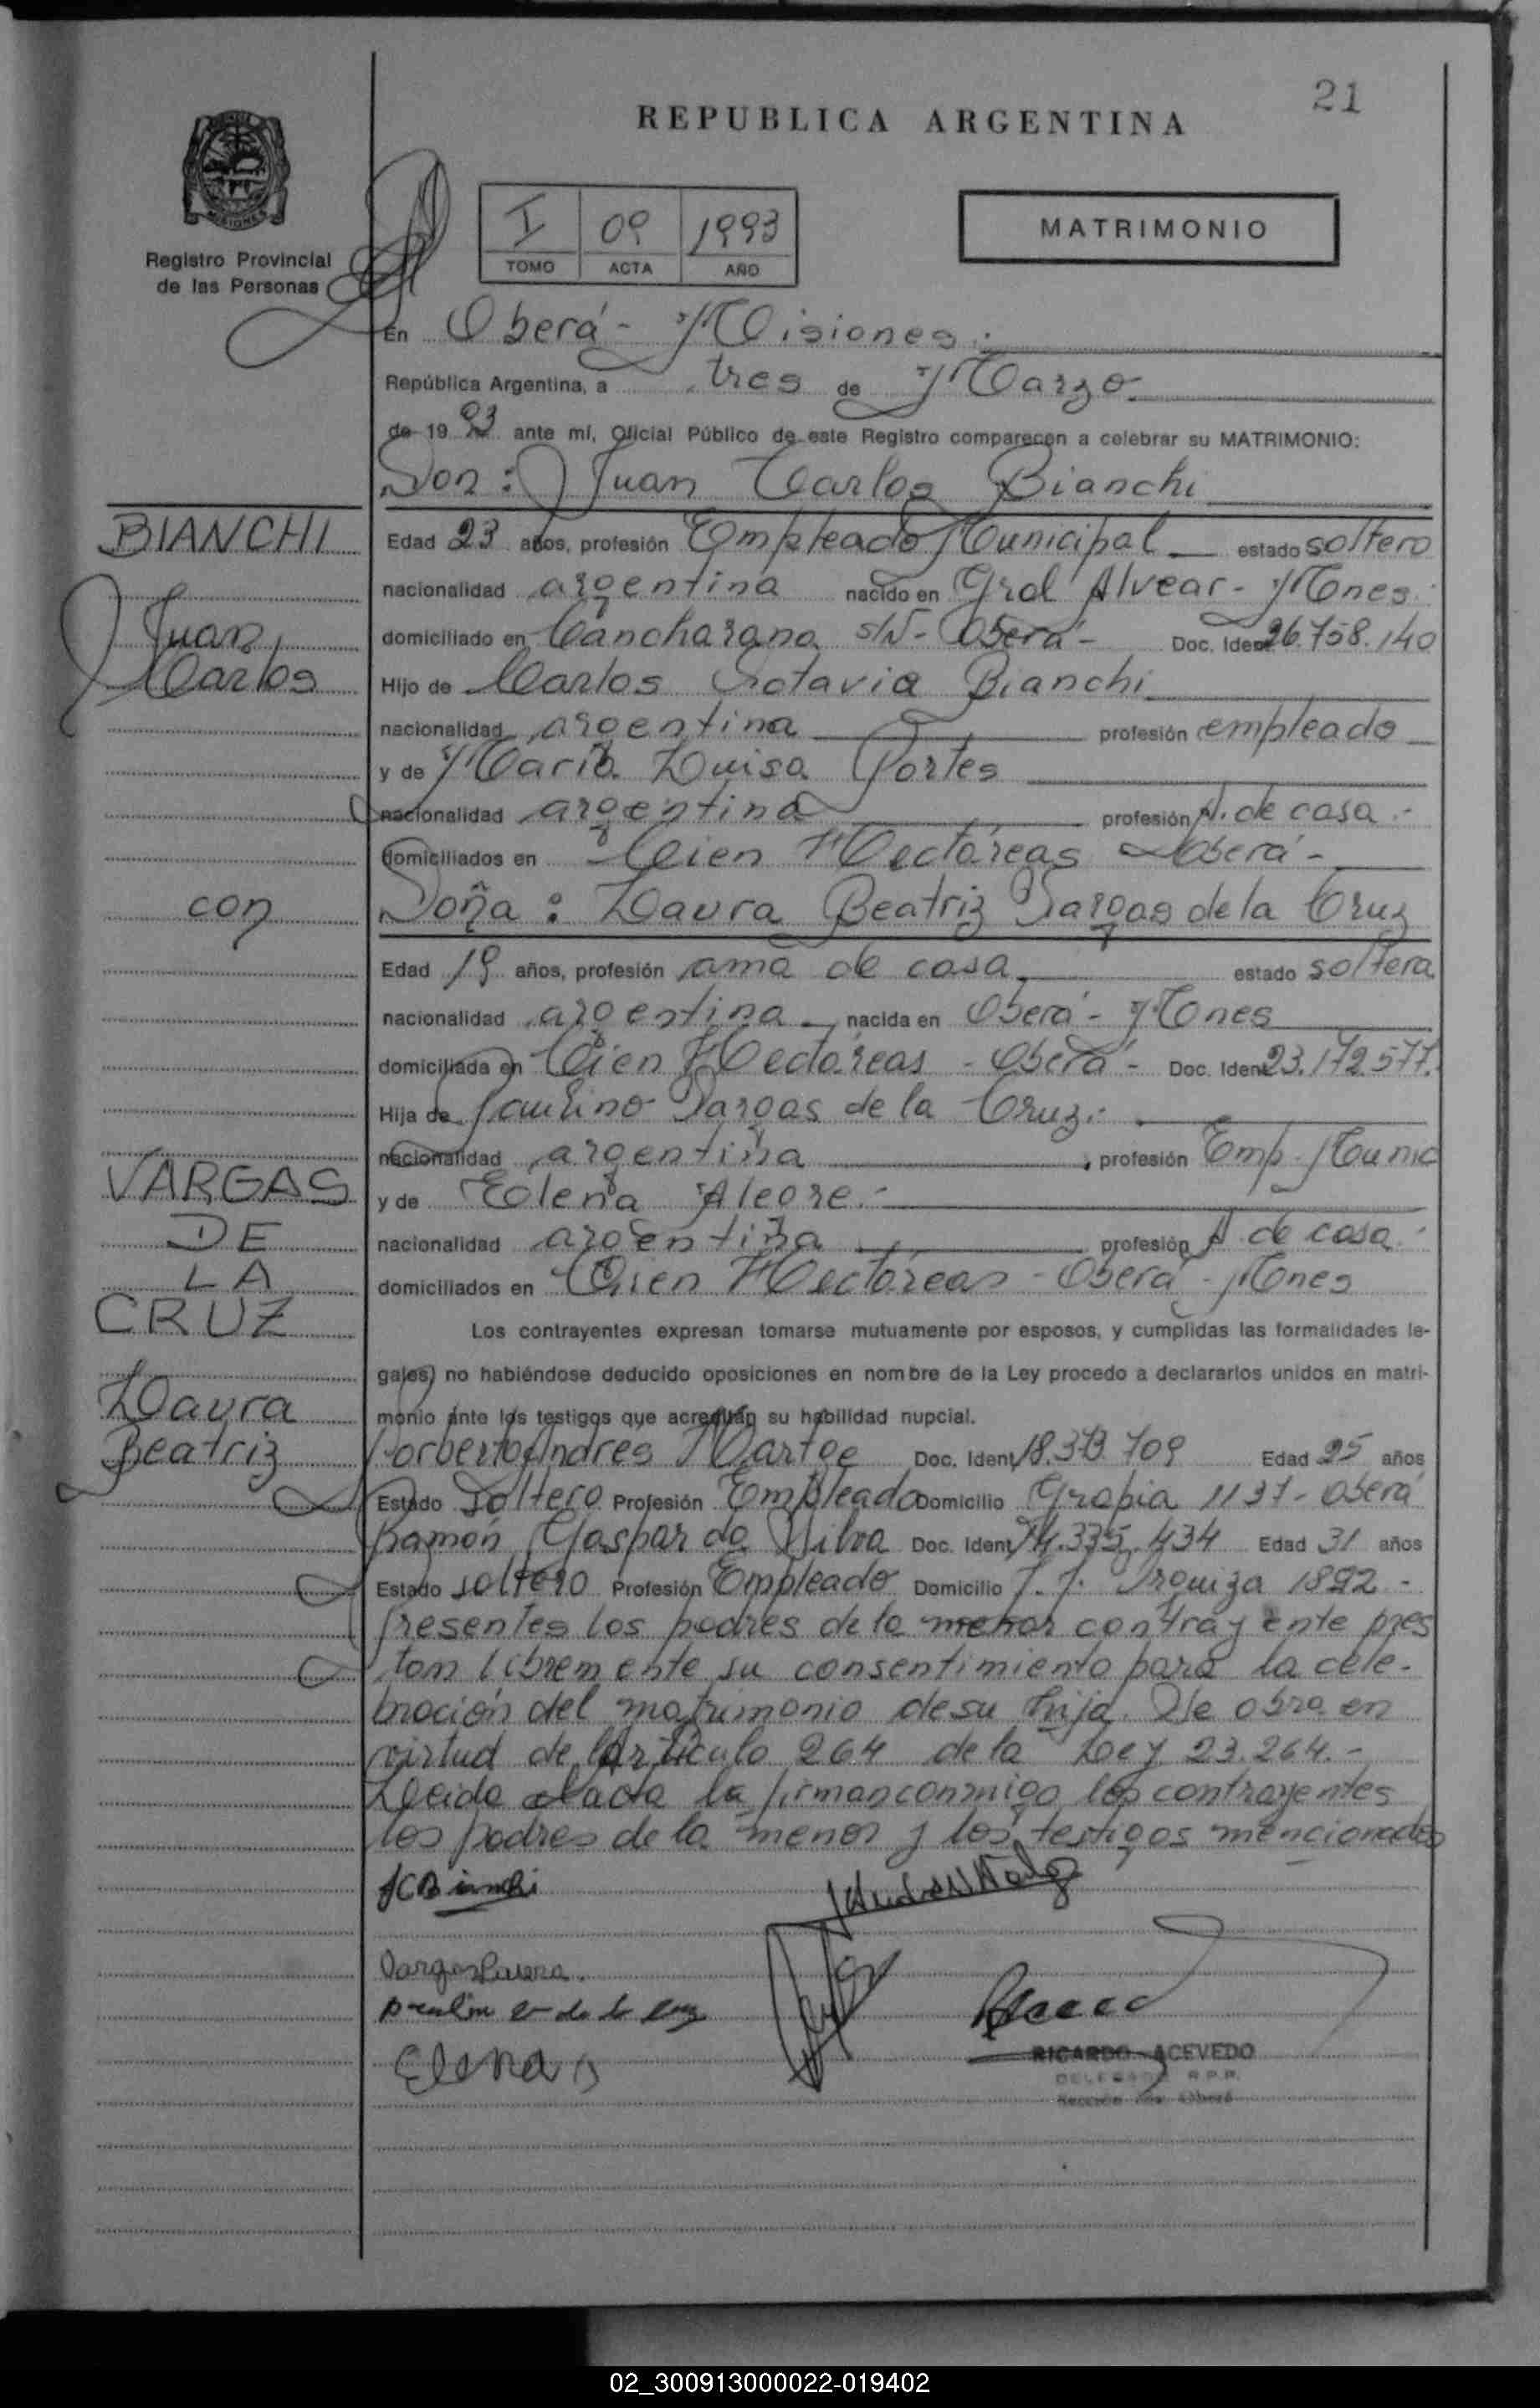 21
REPUBLICA ARGENTINA
MISIONES
Registro Provincial
de las Personas
I 09 1993
TOMO ACTA AÑO
MATRIMONIO
En Oberá - Misiones.
República Argentina, a tres de Marzo
de 19 93 ante mí, Oficial Público de este Registro comparecen a celebrar su MATRIMONIO:
Don: Juan Carlos Bianchi
BIANCHI
Juan
Carlos
Edad 23 años, profesión Empleado Municipal estado soltero
nacionalidad argentina nacido en Gral Alvear - Mnes.
domiciliado en Cancharana s/N - Oberá - Doc. Iden 26.758.140
Hijo de Carlos Bianchi
nacionalidad argentina profesión empleado
y de María Luisa Portes
nacionalidad argentina profesión A. de casa.-
domiciliados en Cien Hectáreas Oberá -
con
Doña: Laura Beatriz Vargas de la Cruz
Edad 19 años, profesión ama de casa estado soltera
nacionalidad argentina nacida en Oberá - Mnes
domiciliada en Cien Hectáreas - Oberá - Doc. Iden 23.172.577.
Hija de Paulino Vargas de la Cruz.-
nacionalidad argentina, profesión Emp. Munic
y de Elena Alegre.-
nacionalidad argentina profesión A. de casa.
domiciliados en Cien Hectáreas - Oberá - Mnes
VARGAS
DE
LA
CRUZ
Laura
Beatriz
Los contrayentes expresan tomarse mutuamente por esposos, y cumplidas las formalidades le-
gales, no habiéndose deducido oposiciones en nombre de la Ley procedo a declararlos unidos en matri-
monio ante los testigos que acreditan su habilidad nupcial.
Norberto Andrés Doc. Ident 18.373.709 Edad 25 años
Estado soltero Profesión Empleado Domicilio 1137 - Oberá
Ramón Gaspar da Silva Doc. Ident 14.335.434 Edad 31 años
Estado soltero Profesión Empleado Domicilio J. J. Urquiza 1892 -
Presentes los padres de la menor contrayente pres
tan libremente su consentimiento para la cele-
bración del matrimonio de su hija. Se obra en
virtud del Artículo 264 de la Ley 23.264.-
Leida el acta la firman conmigo los contrayentes
los padres de la menor y los testigos mencionados
JCBianchi
Vargas Laura.
Elena
RICARDO ACEVEDO
DELEGADO R.P.P.
02_300913000022-019402